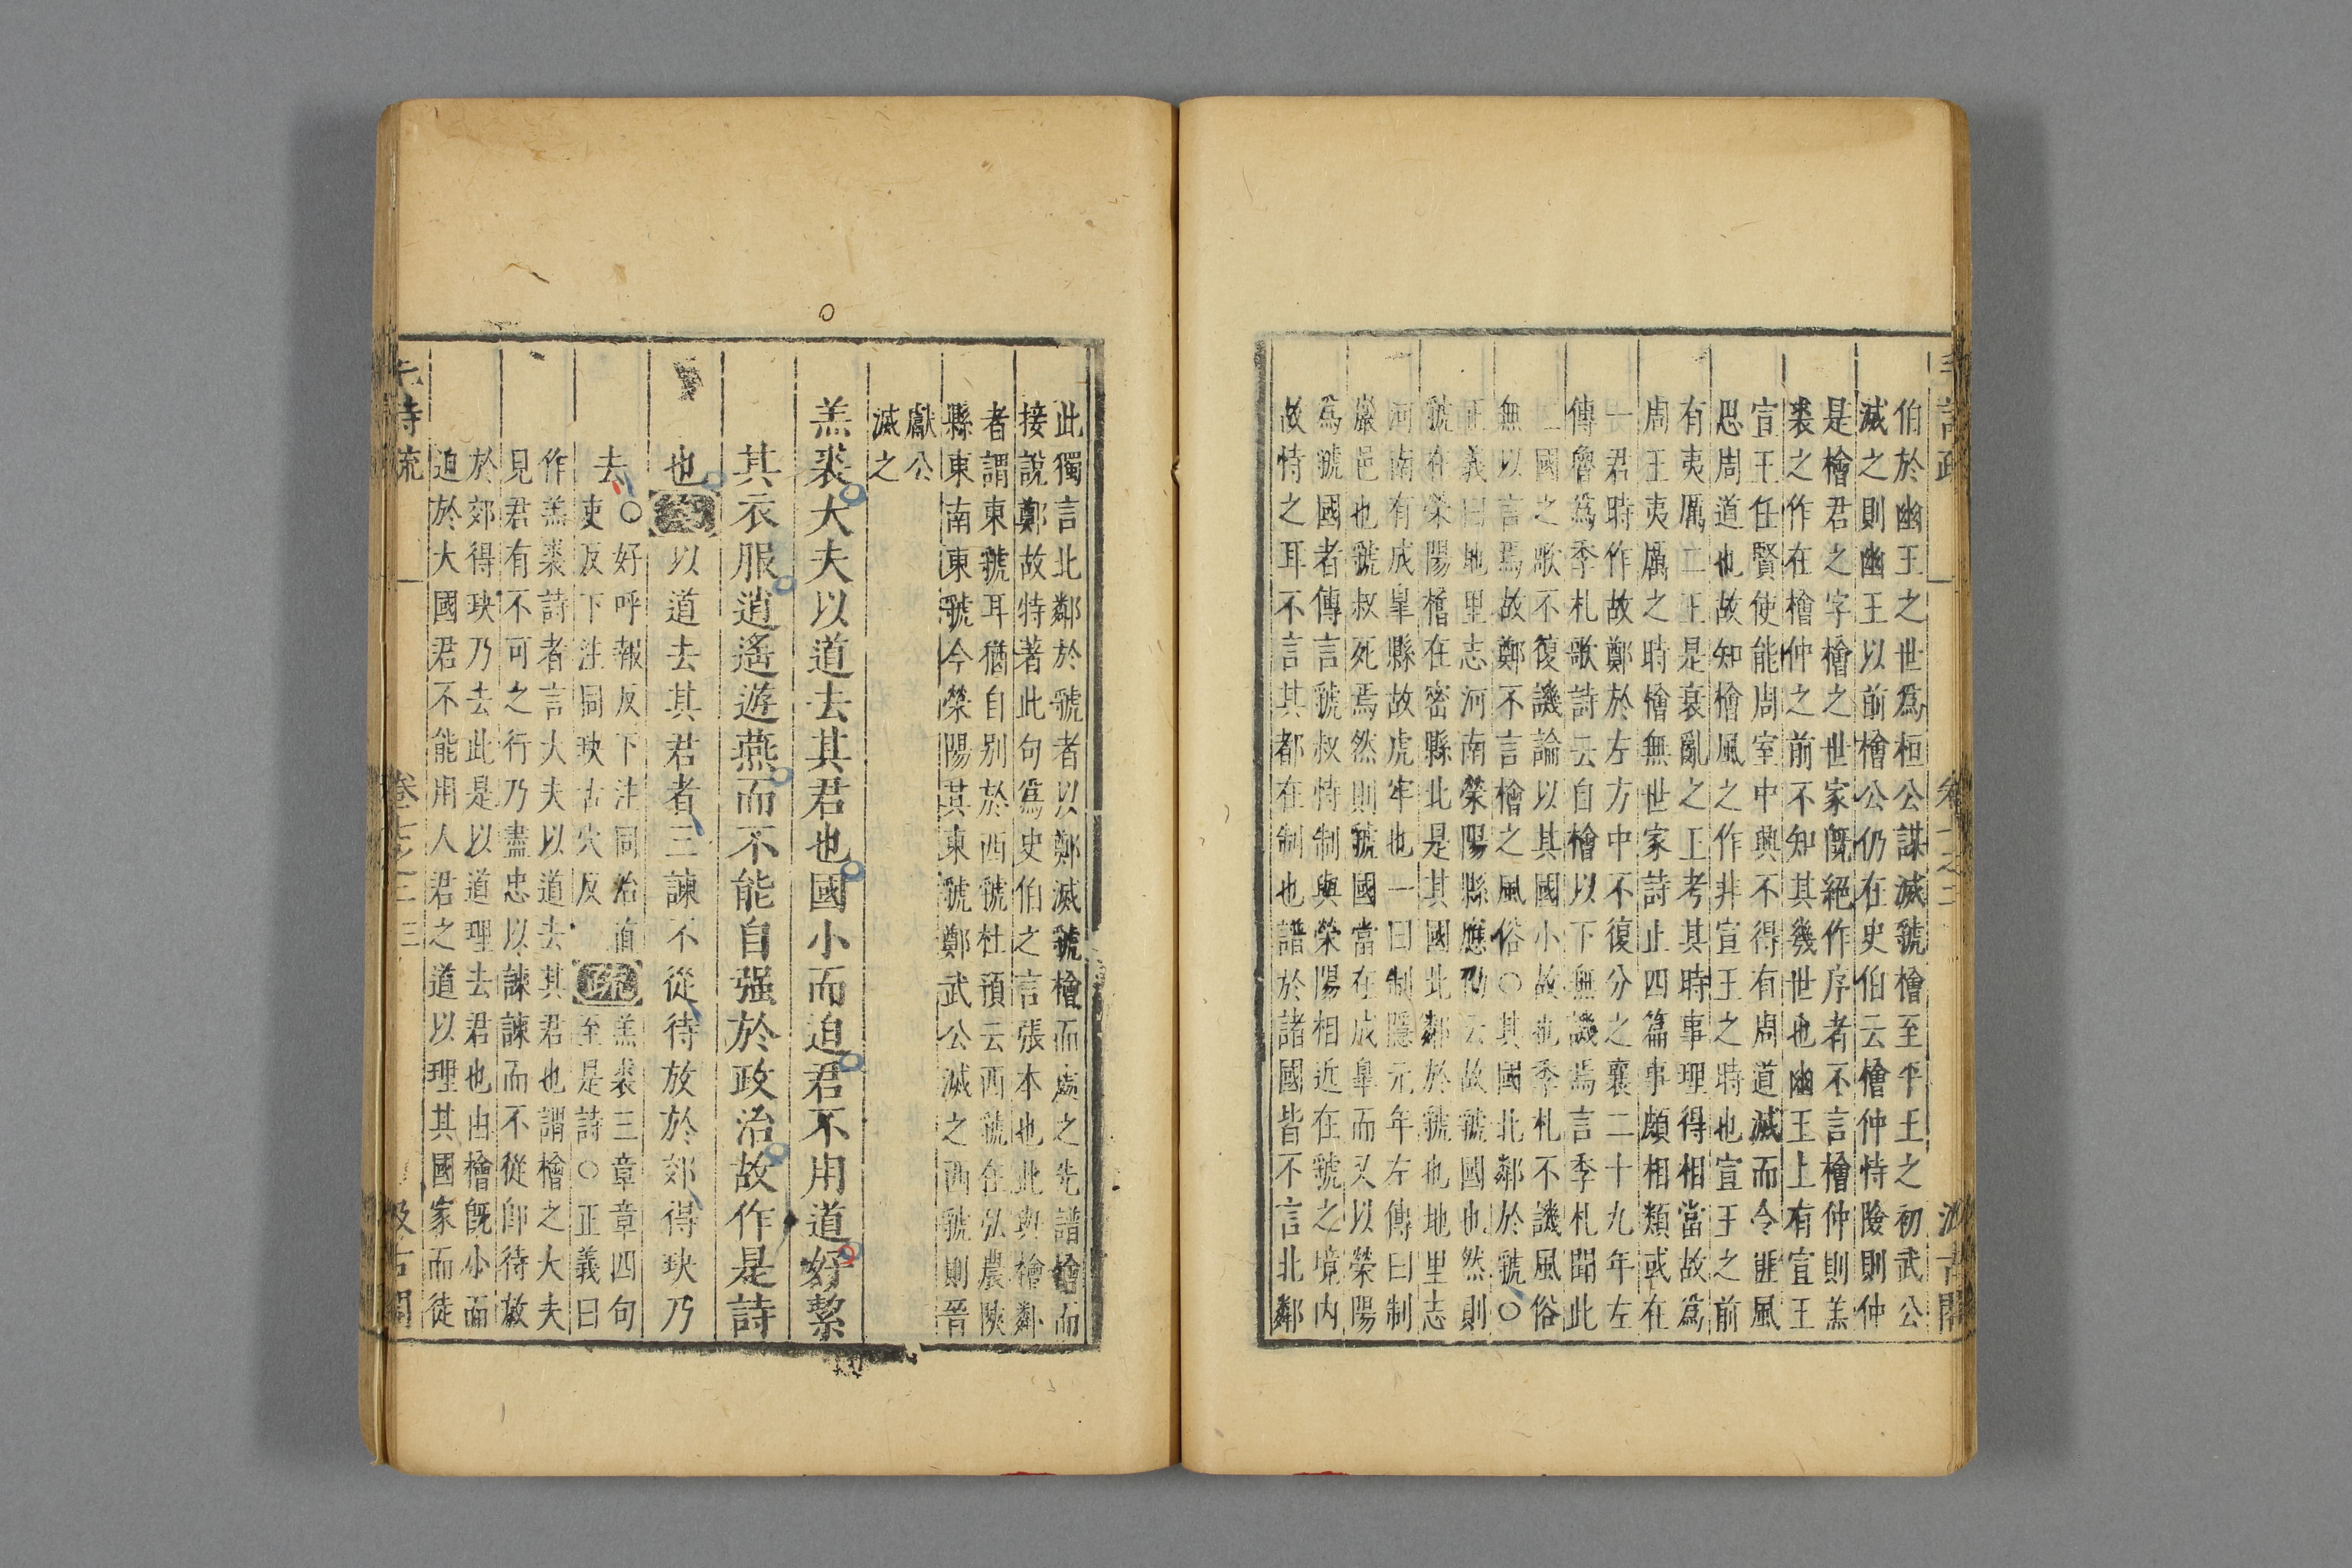 伯於幽王之世爲桓公謀滅虢檜至平王之初武公
滅之則幽王以前檜公仍在史伯云檜仲恃險則仲
是檜君之字檜之世家旣絕作序者不言檜仲則羔
裘之作在檜仲之前不知其幾世也幽王上有宣王
宣王任賢使能周室中興不得有周道滅而令匪風
思周道也故知檜風之作非宣王之時也宣王之前
有夷厲二王是衰亂之王考其時事理得相當故爲
周王夷厲之時檜無世家詩止四篇事頗相類或在
一君時作故鄭於左方中不復分之襄二十九年左
傳魯爲季札歌詩云自檜以下無譏焉言季札聞此
二國之歌不復譏論以其國小故也季札不譏風俗
無以言焉故鄭不言檜之風俗○其國北鄰於虢○
正義曰地里志河南滎陽縣應劭云故虢國也然則
虢在滎陽檜在密縣北是其國北鄰於虢也地里志
河南有成臯縣故虎牢也一曰制隱元年左傳曰制
巖邑也虢叔死焉然則虢國當在成臯而又以滎陽
爲虢國者傳言虢叔恃制與滎陽相近在虢之境內
故恃之耳不言其都在制也譜於諸國皆不言北鄰
此獨言北鄰於虢者以鄭滅虢檜而處之先譜檜而
接說鄭故特著此句爲史伯之言張本也此與檜鄰
者謂東虢耳猶自別於西虢杜預云西虢在弘農陝
縣東南東虢今滎陽其東虢鄭武公滅之西虢則晉
獻公
滅之
羔裘大夫以道去其君也國小而迫君不用道好絜
其衣服逍遙遊燕而不能自强於政治故作是詩
也 以道去其君者三諫不從待放於郊得玦乃
去○好呼報反下注同治直
吏反下注同玦古穴反
疏羔裘三章章四句
至是詩○正義曰
作羔裘詩者言大夫以道去其君也謂檜之大夫
見君有不可之行乃盡忠以諫諫而不從卽待放
於郊得玦乃去此是以道理去君也由檜旣小而
迫於大國君不能用人君之道以理其國家而徒
毛詩疏 卷七之二 三 汲古閣